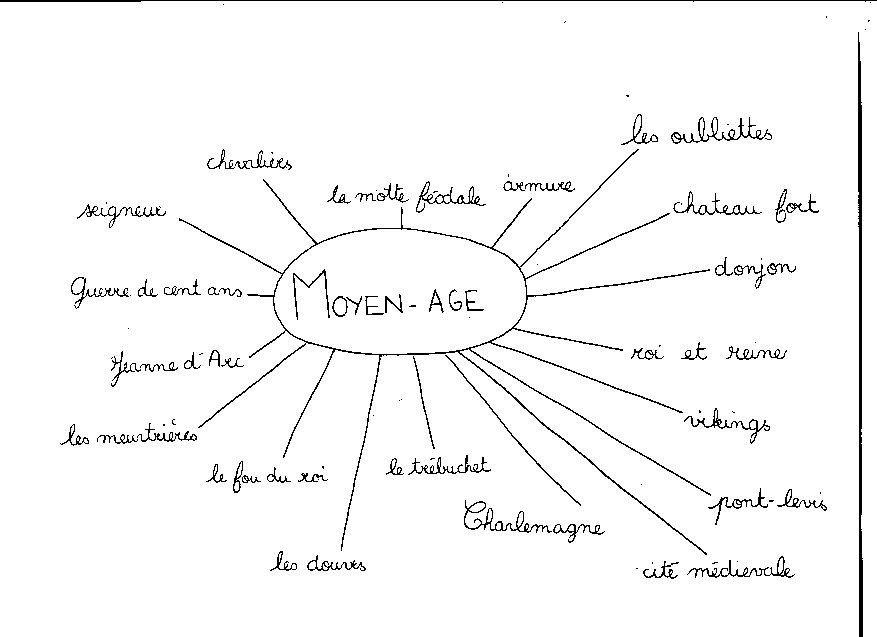 les oubliettes
chevaliers
la motte féodale
armure
seigneur
chateau fort
donjon
Guerre de cent ans
MOYEN-AGE
roi et reine
Jeanne d'Arc
vikings
les meurtrières
le fou du roi
le trébuchet
pont-levis
Charlemagne
les douves
cité médievale